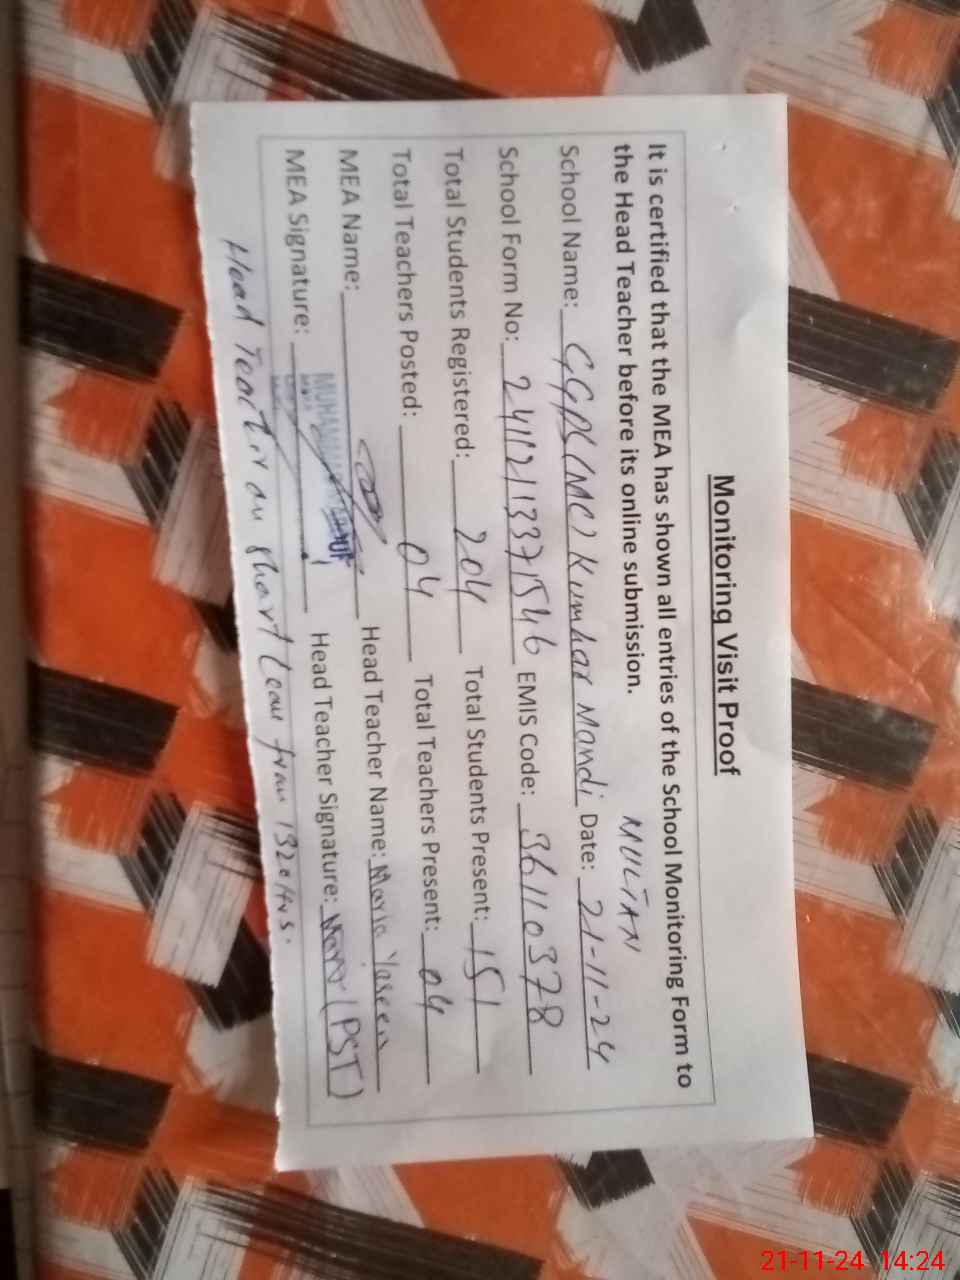 Monitoring Visit Proof
It is certified that the MEA has shown all entries of the School Monitoring Form to
the Head Teacher before its online submission.
MULTAN
School Name: GGPS (MC) Kumhar Mandi Date: 21-11-24
School Form No: 24112113371546 EMIS Code: 36110378
Total Students Registered: 204 Total Students Present: 151
Total Teachers Posted: 04 Total Teachers Present: 04
MEA Name: Head Teacher Name: Maria Yaseen
MEA Signature: Head Teacher Signature: (PST)
Head Teacher on short leave from 1320 Hrs.
21-11-24 14:24